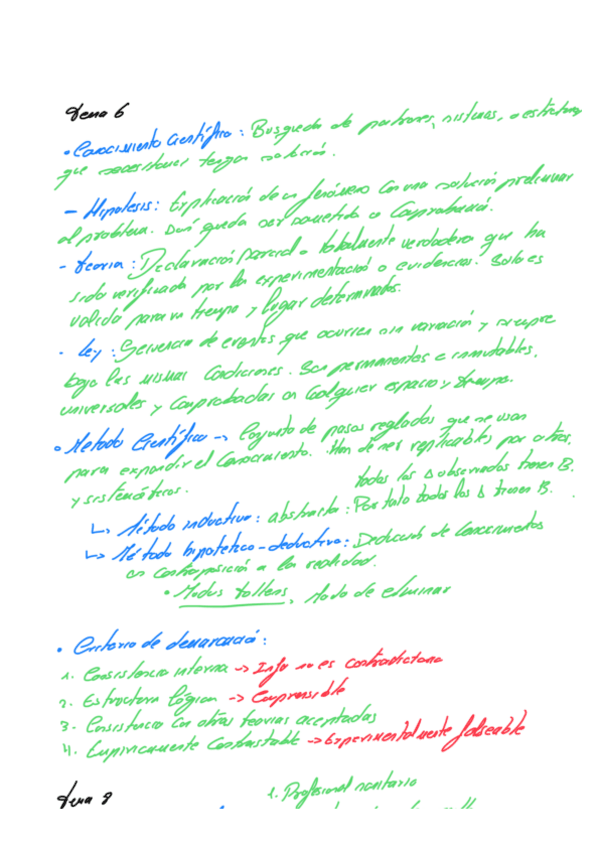 Tema 6
• Conocimiento Científico : Búsqueda de patrones, sistemas, o estructuras
que necesitamos tengan
– Hipótesis: Explicación de un fenómeno con una solución preliminar
al problema. queda ser sometida a Comprobación.
- Teoría : Declaración parcial o totalmente verdadera que ha
sido verificada por la experimentación o evidencias. Solo es
valida para un tiempo y lugar determinados.
· Ley : Secuencia de eventos que ocurren sin variación y siempre
bajo las mismas Condiciones. Son permanentes e inmutables,
universales y Comprobadas en Cualquier espacio y tiempo.
• Método Científico → Conjunto de pasos reglados que se usan
para expandir el Conocimiento. Han de ser replicables por otros
y sistemáticos.
todos los Δ observados tienen B.
↳ Método inductivo: abstracto : Por tanto todos los Δ tienen B.
↳ Método hipotético-deductivo: Deducción de Conocimientos
en Contraposición a la realidad.
• Modus tollens, Modo de eliminar
• Criterio de demarcación:
1. Consistencia interna → Info no es contradictoria
2. Estructura lógica → Comprensible
3. Consistencia con otras teorías aceptadas
4. Empíricamente Contrastable → Experimentalmente falseable
1. Profesional sanitario
Tema 8